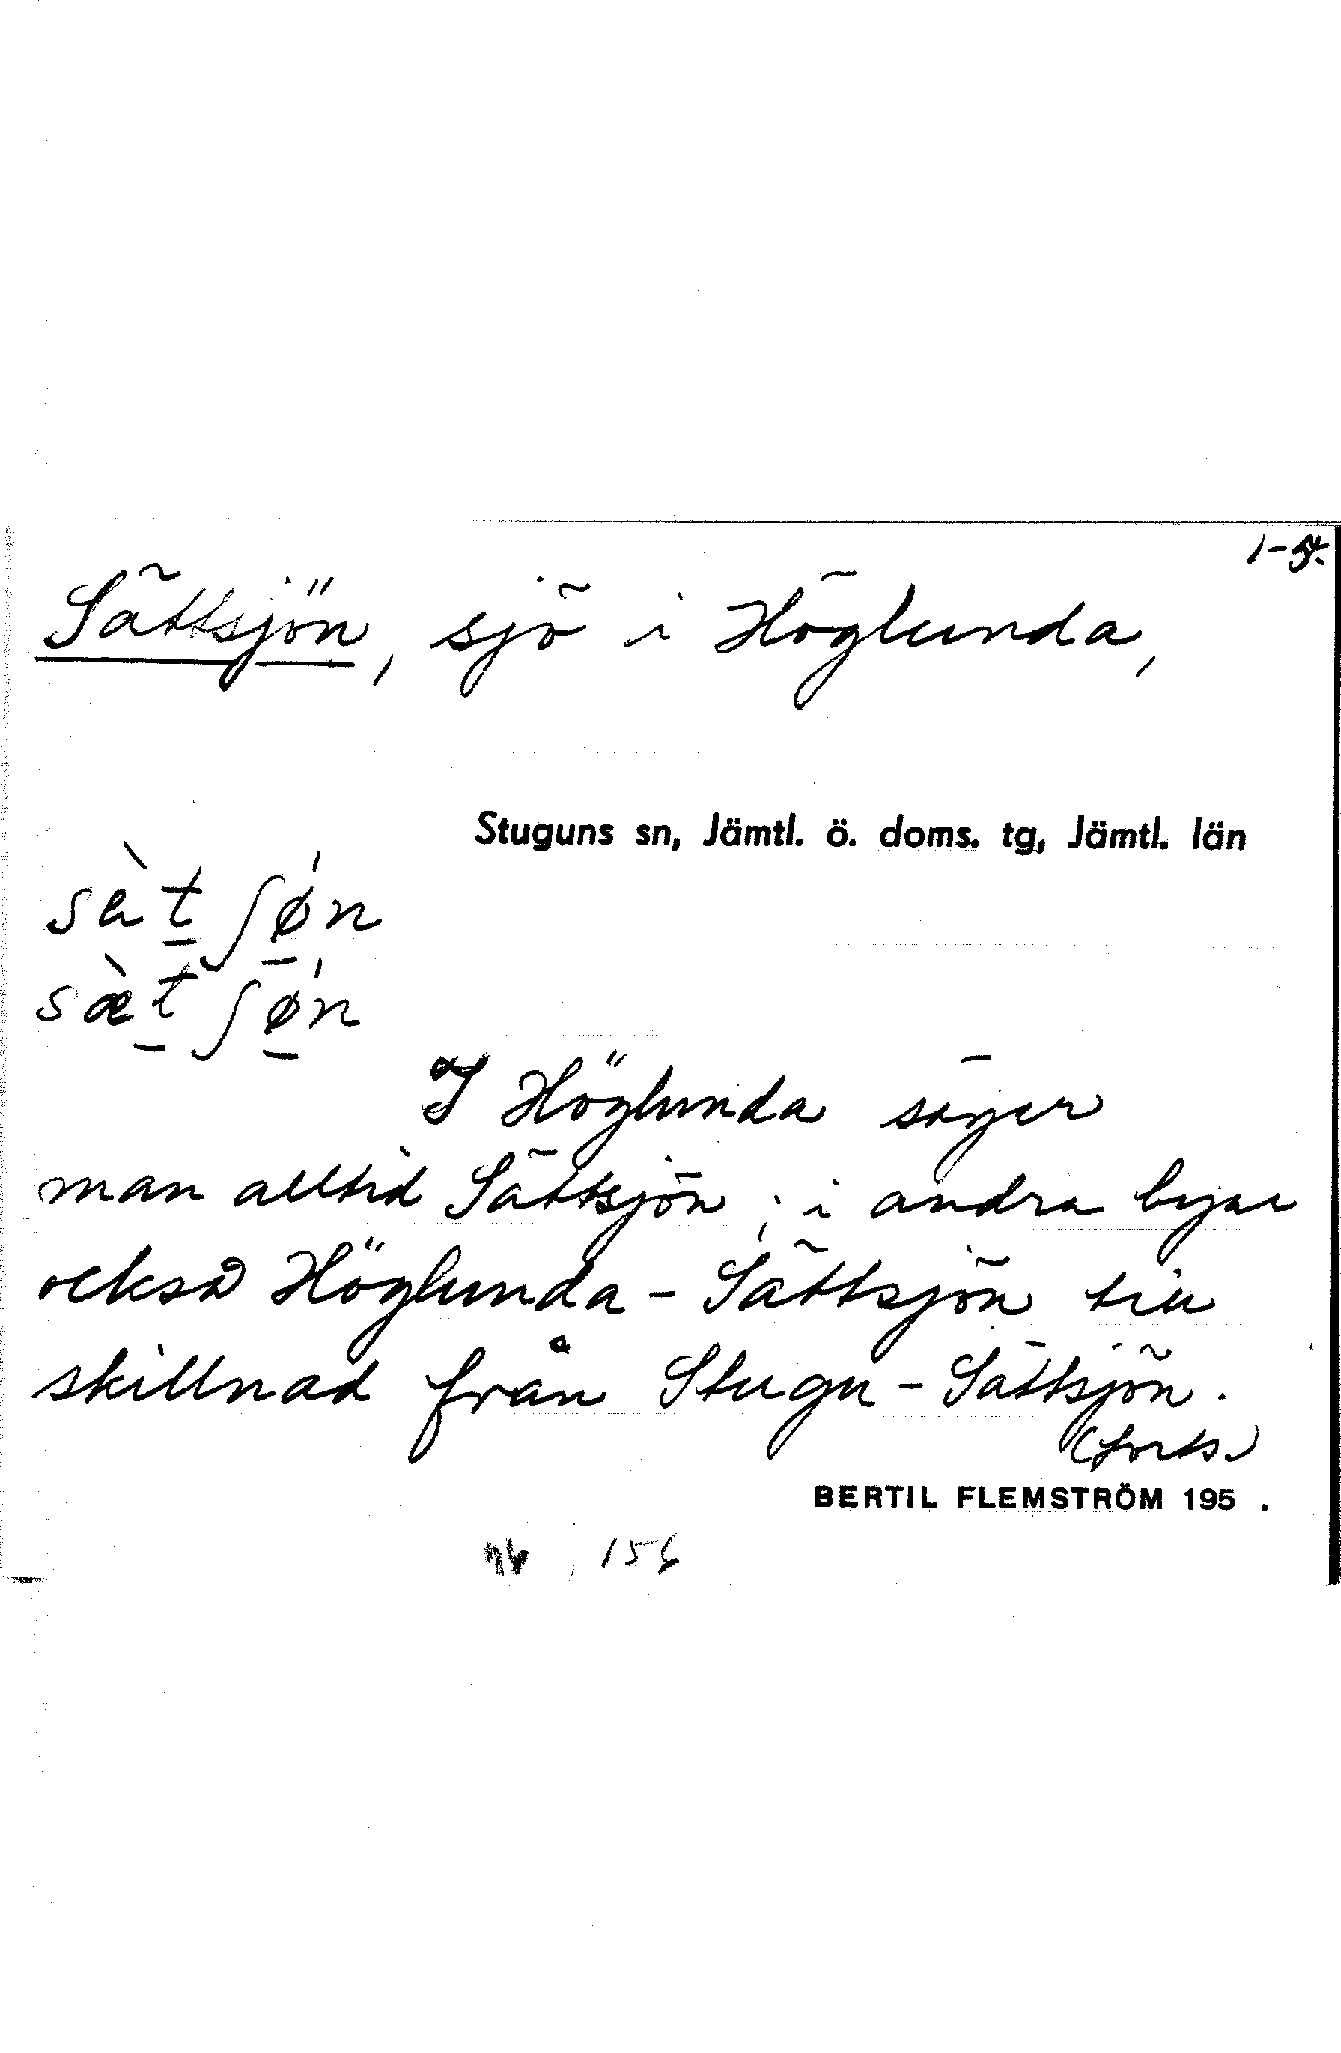 1-4.
Sättsjön, sjö i Höglunda,
Stuguns sn, Jämtl. ö. doms. tg, Jämtl. län
sàt̲ ʃǿ̲n
sæ̀t̲ ʃǿ̲n
I Höglunda säger
man alltid Sättsjön; i andra byar
också Höglunda-Sättsjön till
skillnad från Stugu-Sättsjön.
(forts.)
BERTIL FLEMSTRÖM 195 .
156